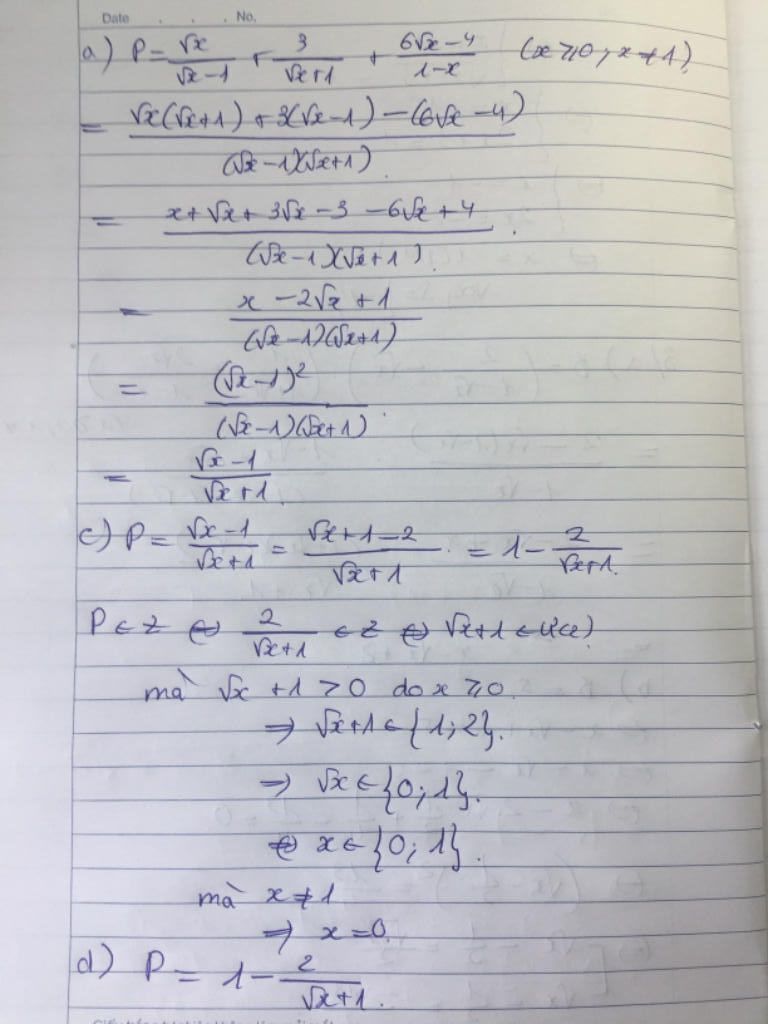 Date . . . No.
a) P = √x/(√x-1) + 3/(√x+1) + (6√x-4)/(1-x) (x ≥ 0, x ≠ 1)
= (√x(√x+1) + 3(√x-1) - (6√x-4))/((√x-1)(√x+1)).
= (x + √x + 3√x - 3 - 6√x + 4)/((√x-1)(√x+1)).
= (x - 2√x + 1)/((√x-1)(√x+1))
= (√x-1)²/((√x-1)(√x+1)).
= (√x-1)/(√x+1).
c) P = (√x-1)/(√x+1) = (√x+1-2)/(√x+1) = 1 - 2/(√x+1).
P ∈ Z ⇔ 2/(√x+1) ∈ Z ⇔ √x+1 ∈
mà √x + 1 > 0 do x ≥ 0.
⇒ √x+1 ∈ {1; 2}.
⇒ √x ∈ {0; 1}.
⇔ x ∈ {0; 1}.
mà x ≠ 1
⇒ x = 0.
d) P = 1 - 2/(√x+1).